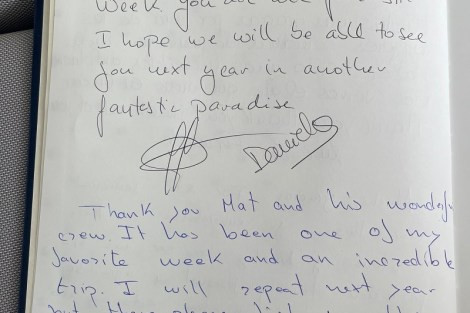 week you
I hope we will be able to see
you next year in another
fantestic paradise
Daniela
Thank you Mat and his wonderful
crew. It has been one of my
favorite week and an incredible
trip. I will repeat next year